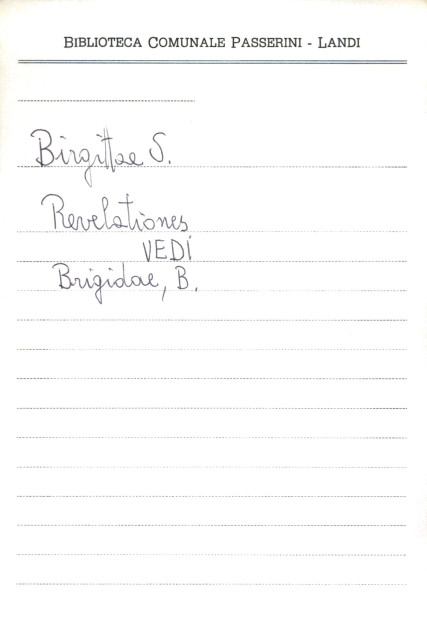 BIBLIOTECA COMUNALE PASSERINI - LANDI
Birgittae S.
Revelationes
VEDI
Brigidae, B.